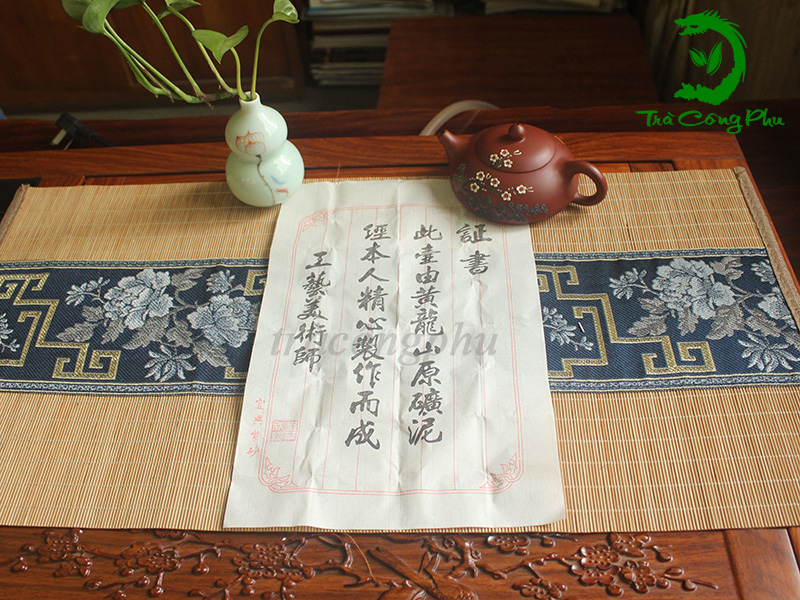 Trà Công Phu
証書
此壺由黄龍山原礦泥
經本人精心製作而成
工藝美術師
宜興紫砂
tracongphu